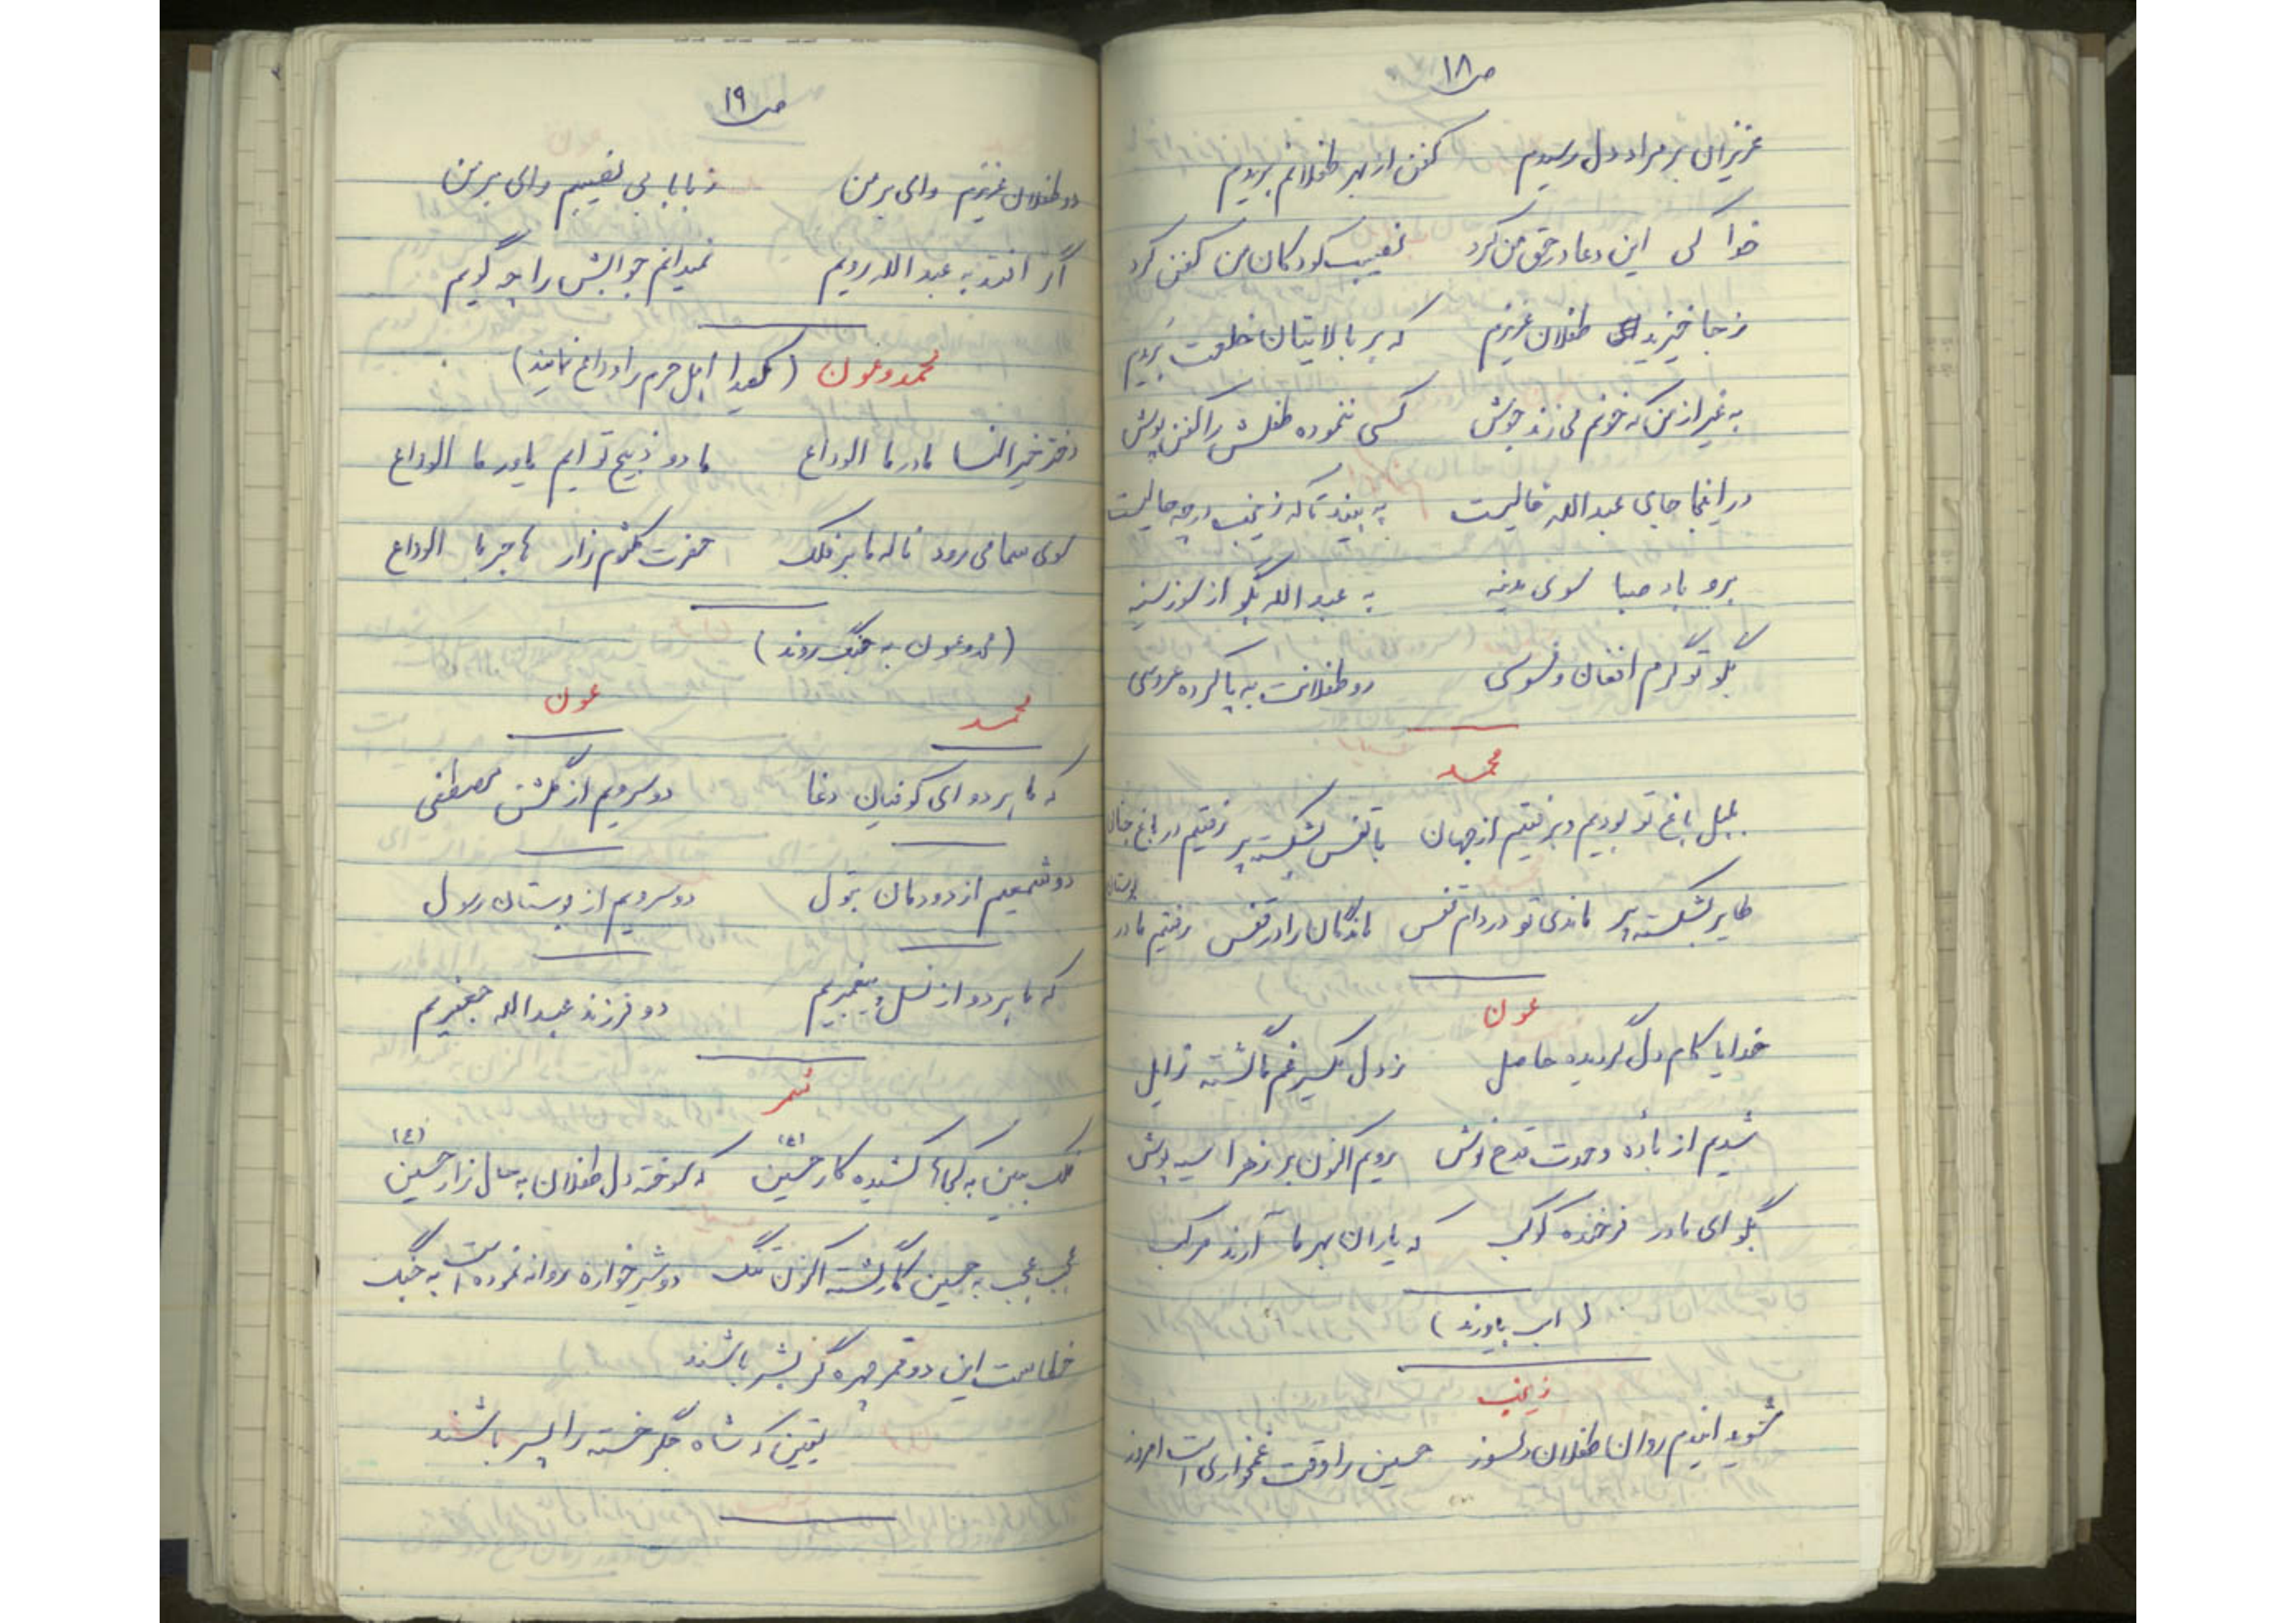 ص ۱۸
عزیزان بر مراد دل رسیدم کفن از بهر طفلانم بریدم
خدا کی این دعا در حق من کرد نصیب کودکان من کفن کرد
ز جا خیزید طفلان عزیزم که بر بالایتان خلعت بریم
به غیر از من که خونم می زند جوش کسی ننموده طفلش را کفن پوش
در اینجا جای عبدالله خالیست به بیند تا که زینب در چه حالیست
برو باد صبا سوی مدینه به عبدالله بگو از سوز سینه
بگو تو گرم افغان و فسوسی دو طفلانت به پا کرده عروسی
محمد
بلبل باغ تو بودیم و برفتیم از جهان با قفس بشکسته پر رفتیم در باغ جنان
طایر بشکسته پر ماندی تو در دام قفس ماندگان را در قفس رفتیم ما در بوستان
عون
خدایا کام دل گردیده حاصل ز دل یکسر غم ما گشته زایل
شدیم از باده وحدت قدح نوش رویم اکنون بر زهرا سیه پوش
بگو ای مادر فرخنده کوکب که یاران بهر ما آرند مرکب
(اسب بیاورند)
زینب
شوید ایندم روان طفلان دلسوز حسین را وقت غمخواری است امروز
ص ۱۹
دو طفلان عزیزم وای بر من ز بابا بی نصیبم وای بر من
گر افتد به عبدالله رویم نمیدانم جوابش را چه گویم
محمد و عون ( اهل حرم را وداع نمایند)
دختر خیر النسا مادر ما الوداع ما دو ذبیح تو ایم یاور ما الوداع
سوی سما می رود ناله ما بر فلک حضرت کلثوم زار هاجر ما الوداع
(محمد و عون به جنگ روند)
محمد عون
که ما هر دو ای کوفیان دغا دو سرویم از گلشن مصطفی
دو شمعیم از دودمان بتول دو سرویم از بوستان رسول
که ما هر دو از نسل پیغمبریم دو فرزند عبدالله جعفریم
شمر
فلک ببین به کجا کشیده کار حسین (ع) که سوخته دل طفلان به حال زار حسین (ع)
عجب عجب به حسین کار گشته اکنون تنگ دو شیر خواره روانه نموده است به جنگ
خطاست این دو قمر چهره گر بشر باشند
یقین که شاه جگر خسته را پسر باشند